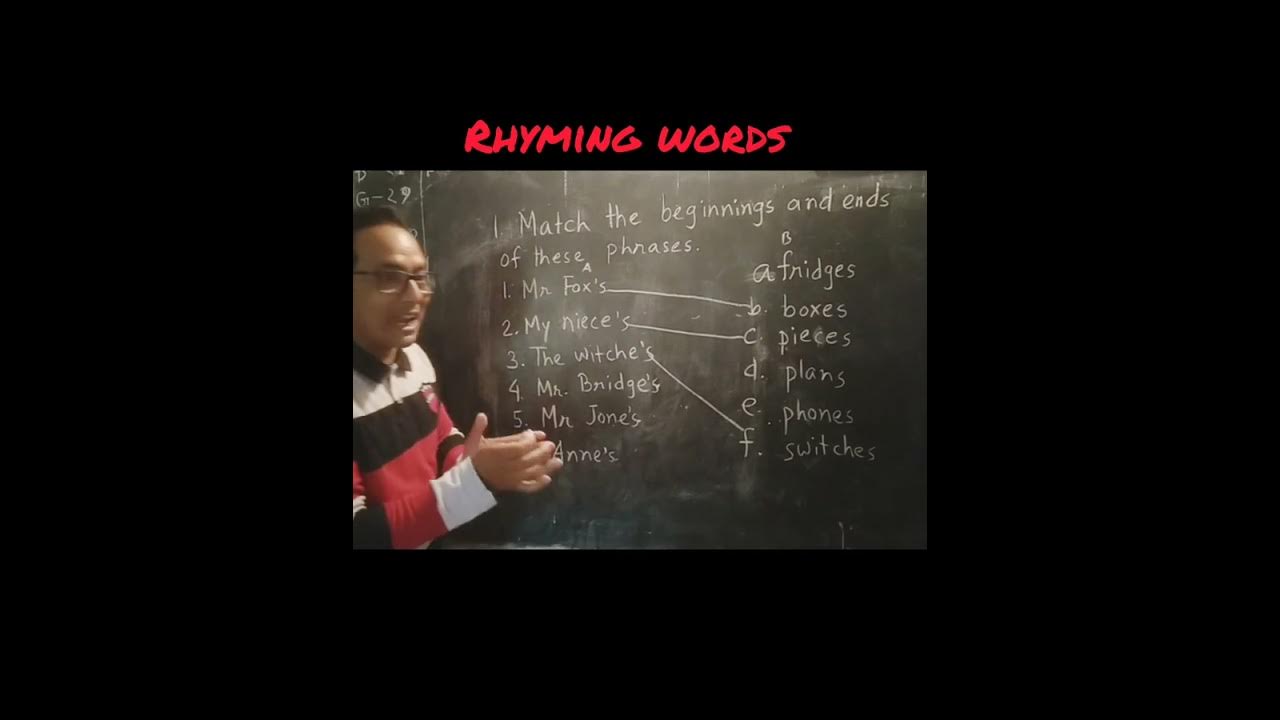 RHYMING WORDS
G-29
1. Match the beginnings and ends
of these phrases.
A
B
1. Mr Fox's
a fridges
2. My niece's
b. boxes
3. The witche's
c. pieces
4. Mr. Bridge's
d. plans
5. Mr Jone's
e. phones
Anne's
f. switches